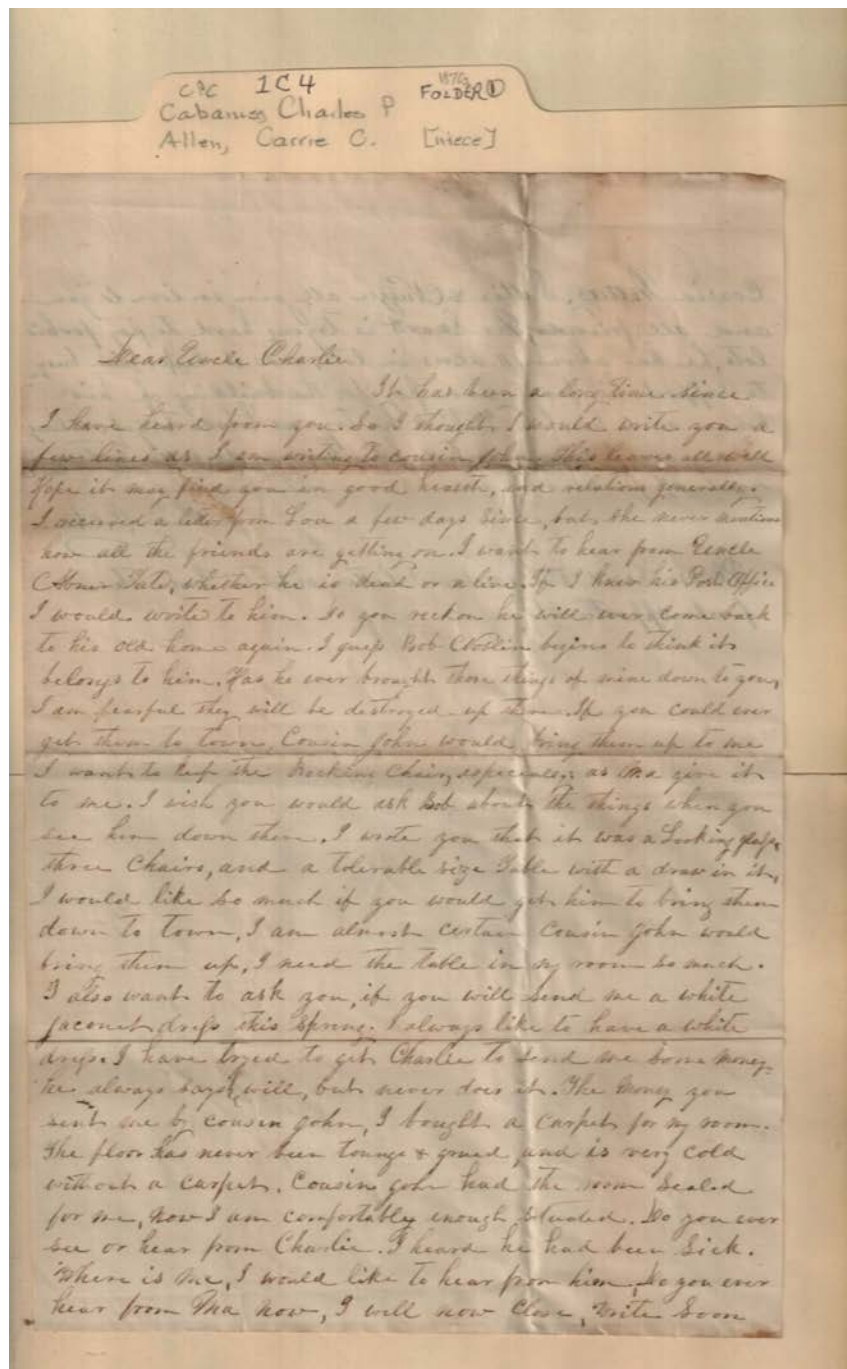 CPC 1C4 1876 FOLDER 1
Cabaniss Charles P
Allen, Carrie C. [niece]
Dear Uncle Charlie
It has been a long time since
I have heard from you. So I thought I would write you a
few lines as I am writing to cousin John. This leaves all well
hope it may find you in good health, and relations generally.
I received a letter from Lou a few days since, but she never mentions
how all the friends are getting on. I want to hear from Uncle
Abner Tate, whether he is dead or alive. If I knew his Post Office
I would write to him. Do you reckon he will ever come back
to his old home again. I guess Bob begins to think it
belongs to him. Has he ever brought those things of mine down to you,
I am fearful they will be destroyed up there. If you could ever
get them to town, Cousin John would bring them up to me
I want to kep the Rocking Chair, especialey as Ma give it
to me. I wish you would ask Bob about the things when you
see him down there. I wrote you that it was a Looking glass,
three Chairs, and a tolerable size Table with a draw in it,
I would like so much if you would get him to bring them
down to town, I am almost certain Cousin John would
bring them up, I need the table in my room so much.
I also want to ask you, if you will send me a white
jaconet dress this Spring. I always like to have a white
dress. I have tryed to get Charlie to send me some money
he always says will, but never does it. The money you
sent me by cousin John, I bought a carpet for my room.
The floor has never been tounge & grued, and is very cold
without a carpet. Cousin John had the room sealed
for me, now I am comfortably enough situated. Do you ever
see or hear from Charlie. I heard he had been Sick.
Where is he, I would like to hear from him. Do you ever
hear from Ma now, I will now Close, Write Soon